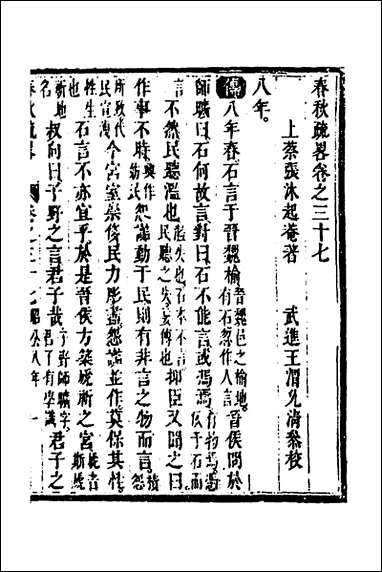 春秋疏畧卷之三十七
上蔡張沐起菴著 武進王渭允清黎校
八年。
傳八年春石言于晉魏榆晉魏邑之榆地。有石忽作人言晉侯問於
師曠曰石何故言對曰石不能言或馮焉有物馮依于石而
言不然民聽濫也濫失也石本不言民聽之失妄傳也抑臣又聞之曰
作事不時興作怨讟動于民則有非言之物而言。積怨
所致代民宣洩今宮室崇侈民力彫盡怨讟並作莫保其性。
性生也石言不亦宜乎於是晉侯方築虒祁之宮虒祁
新地名叔向曰子野之言君子哉子野師曠字。君子有學識君子之
春秋疏畧 卷之三十七 昭公八年 一